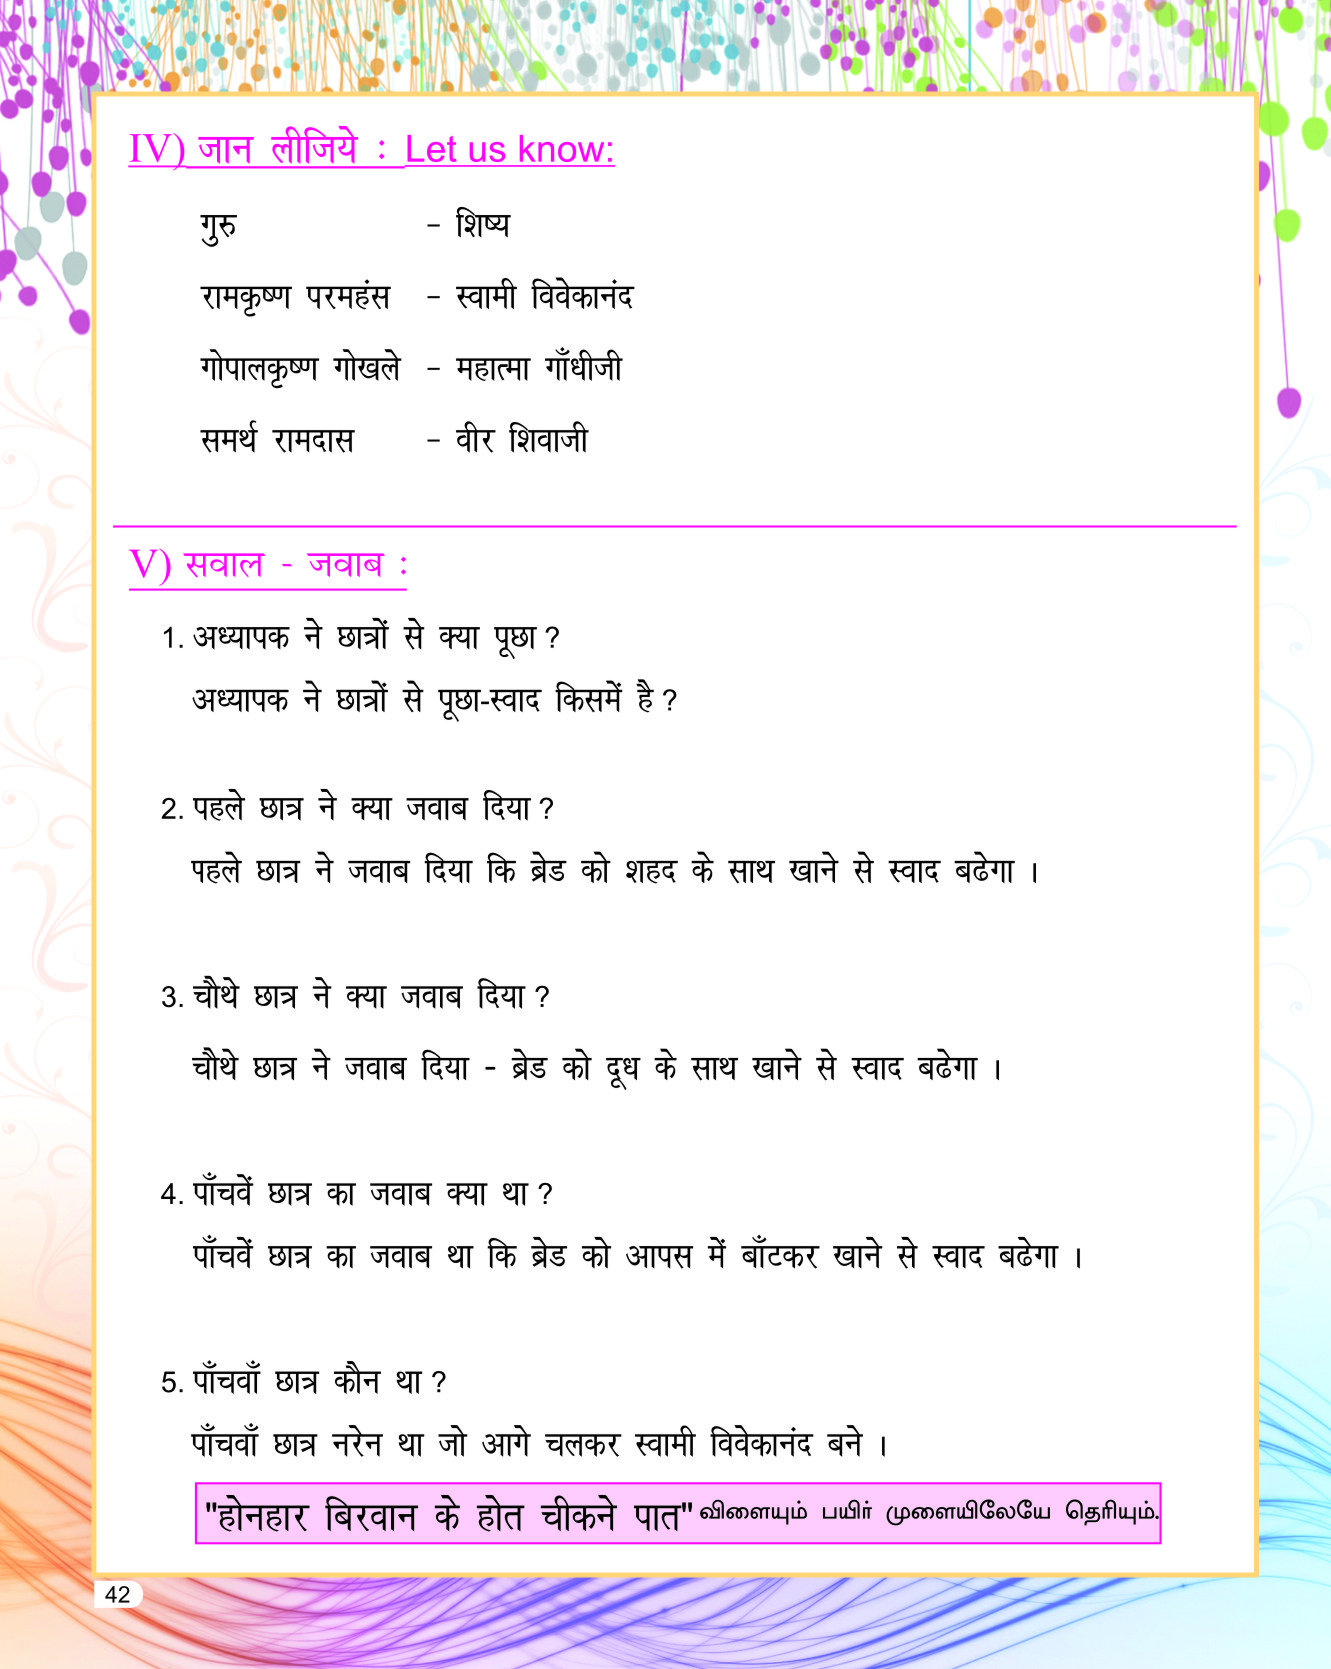 IV) जान लीजिये : Let us know:
गुरु – शिष्य
रामकृष्ण परमहंस – स्वामी विवेकानंद
गोपालकृष्ण गोखले – महात्मा गाँधीजी
समर्थ रामदास – वीर शिवाजी
V) सवाल - जवाब :
1. अध्यापक ने छात्रों से क्या पूछा ?
अध्यापक ने छात्रों से पूछा-स्वाद किसमें है ?
2. पहले छात्र ने क्या जवाब दिया ?
पहले छात्र ने जवाब दिया कि ब्रेड को शहद के साथ खाने से स्वाद बढेगा ।
3. चौथे छात्र ने क्या जवाब दिया ?
चौथे छात्र ने जवाब दिया - ब्रेड को दूध के साथ खाने से स्वाद बढेगा ।
4. पाँचवें छात्र का जवाब क्या था ?
पाँचवें छात्र का जवाब था कि ब्रेड को आपस में बाँटकर खाने से स्वाद बढेगा ।
5. पाँचवाँ छात्र कौन था ?
पाँचवाँ छात्र नरेन था जो आगे चलकर स्वामी विवेकानंद बने ।
"होनहार बिरवान के होत चीकने पात" விளையும் பயிர் முளையிலேயே தெரியும்.
42